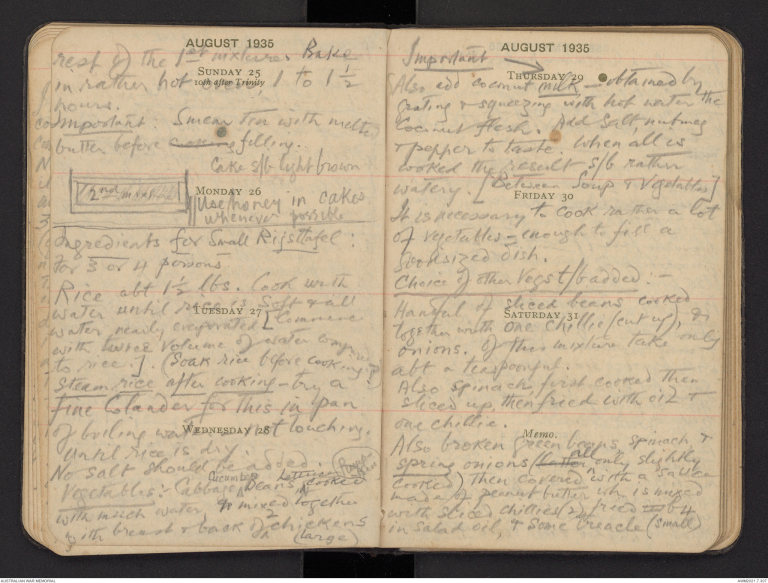 AUGUST 1935
rest of the 1st mixture. Bake
SUNDAY 25
in rather hot oven, 1 to 1 1/2
10th after Trinity
hours.
Important: Smear tin with melted
butter before filling.
Cake s/b light brown
2nd mixture
MONDAY 26
Use honey in cakes
whenever possible
Ingredients for Small Rijsttafel:
for 3 or 4 persons
Rice abt 1 1/2 lbs. Cook with
water until rice is soft & all
TUESDAY 27
water nearly evaporated [Commence
with twice volume of water compared
to rice.] (Soak rice before cooking.)
Steam rice after cooking - try a
fine Colander for this in pan
of boiling water not touching.
WEDNESDAY 28
Until rice is dry.
No salt should be added.
Cucumber
Vegetables: Cabbage, beans, cooked
with much water, mixed together
with breast & back of 2 chickens
(large)
AUGUST 1935
Important
THURSDAY 29
Also add coconut milk - obtained by
grating & squeezing with hot water the
Coconut flesh. Add salt, nutmeg
& pepper to taste. When all is
cooked the result s/b rather
watery. [Between Soup & Vegetables]
FRIDAY 30
It is necessary to cook rather a lot
of vegetables - enough to fill a
goodsized dish.
Choice of other vegs t/b added: -
Handful of sliced beans cooked
SATURDAY 31
together with one chillie (cut up), &
onions. Of this mixture take only
abt a teaspoonful.
Also spinach, first cooked then
sliced up, then fried with oil &
one chillie.
Memo.
Also broken green beans, spinach, &
spring onions (all only slightly
cooked) then covered with a sauce
made of peanut butter wh. is mixed
with sliced chillies (2) fried b4
in salad oil, & some treacle (small)
AUSTRALIAN WAR MEMORIAL